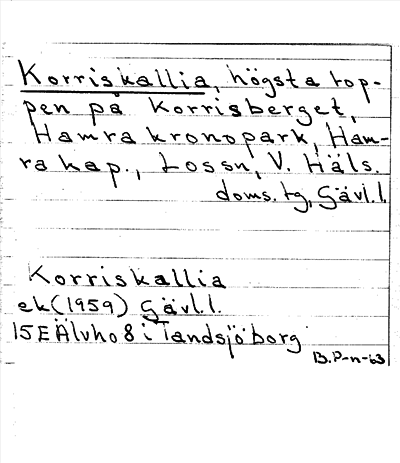 Korriskallia, högsta top-
pen på Korrisberget,
Hamra kronopark, Ham-
ra kap., Lossn, V. Häls.
doms. tg, Gävl.l.
Korriskallia
ek (1959) Gävl.l.
15E Älvho 8 i Tandsjöborg
B.P-n-63